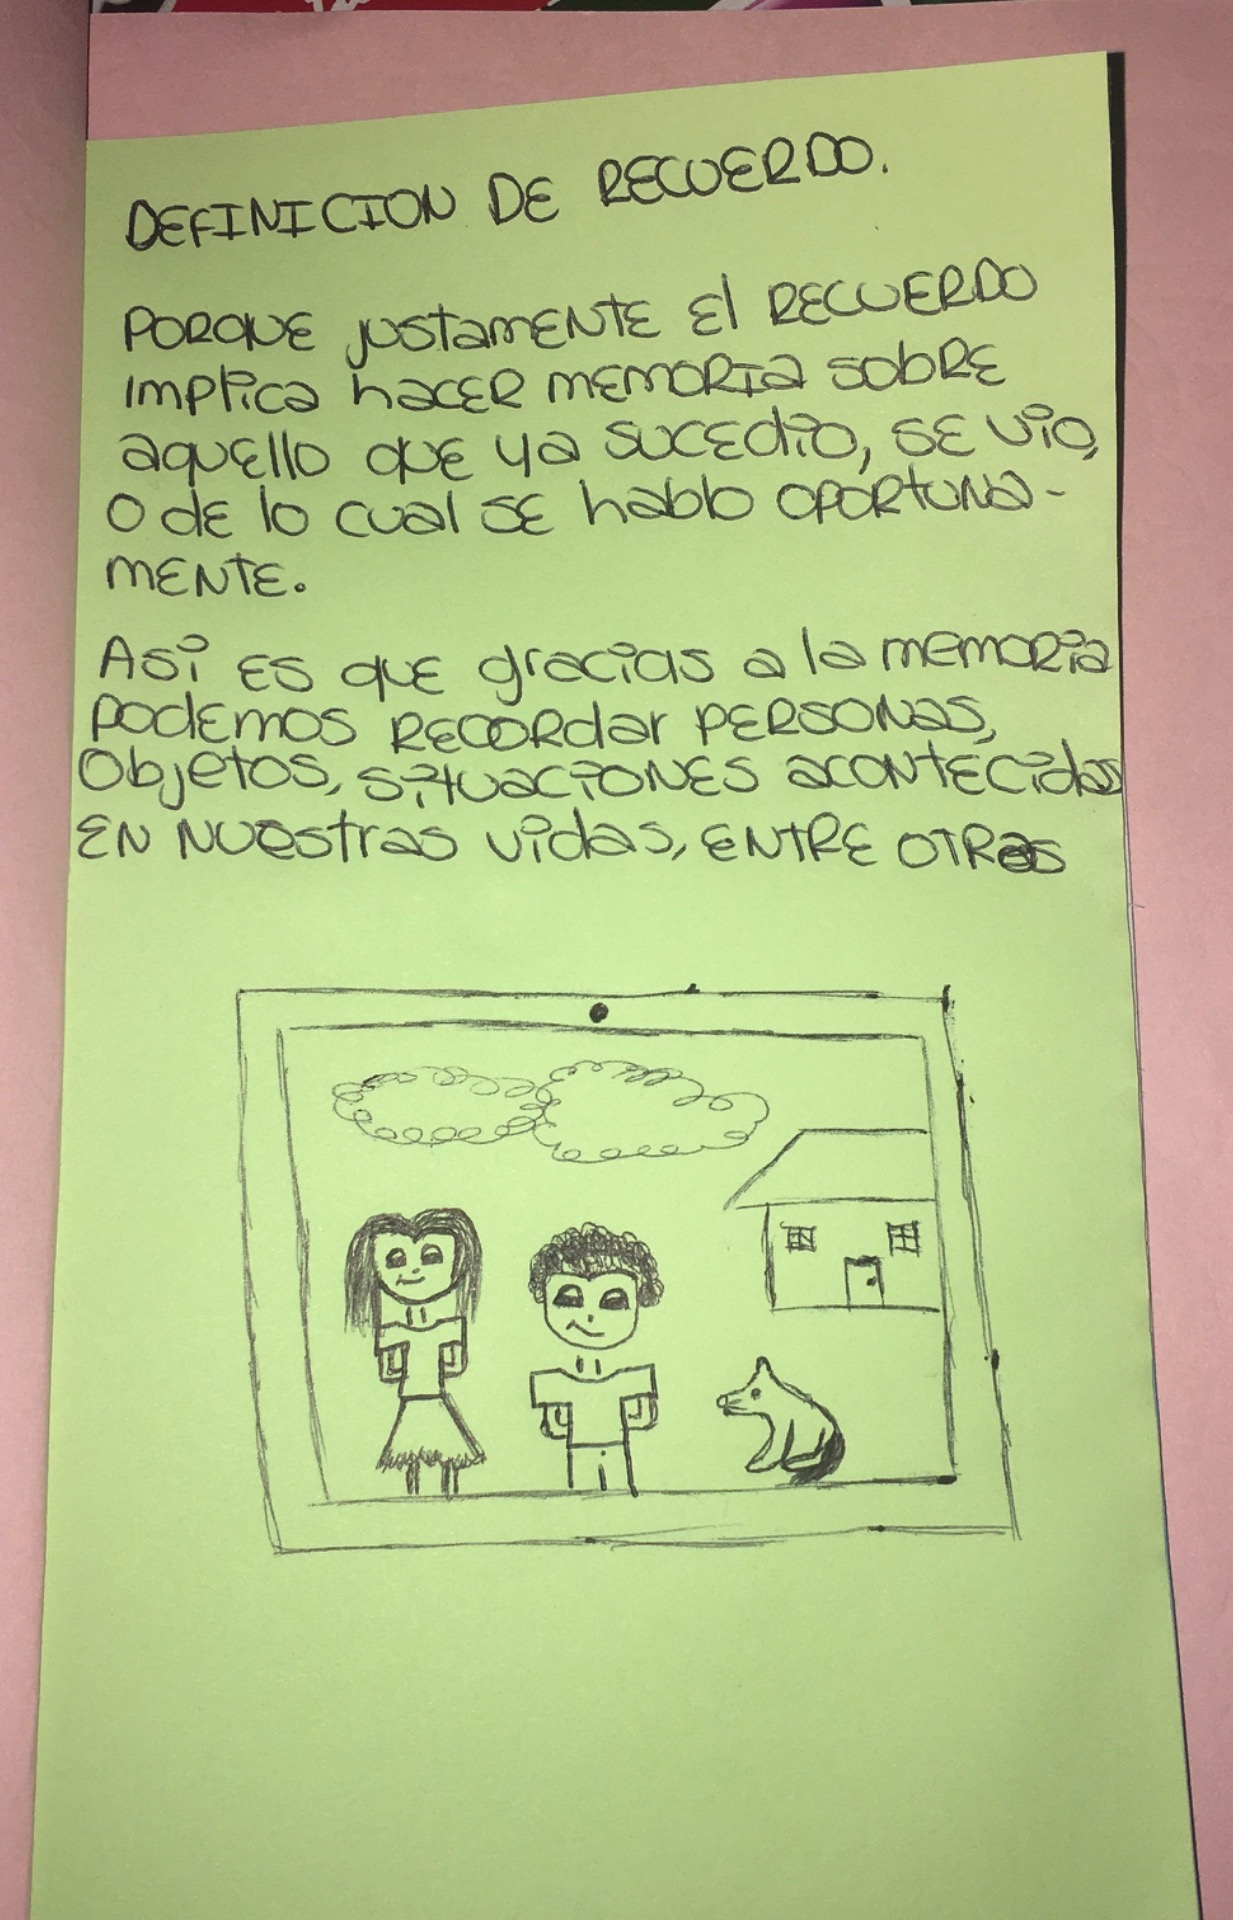 DEFINICION DE RECUERDO.
PORQUE justamENTE El RECUERDO
implica hacER mEMORIa sobRE
aquEllo quE ya sucEdio, SE vio,
O dE lo cual SE hablo oportuna-
mENTE.
Asi ES quE gracias a la mEmoria
podEmos RECORdar PERSONas,
Objetos, situaciONES acONTECidas
EN NUestras vidas, ENTRE OTRas